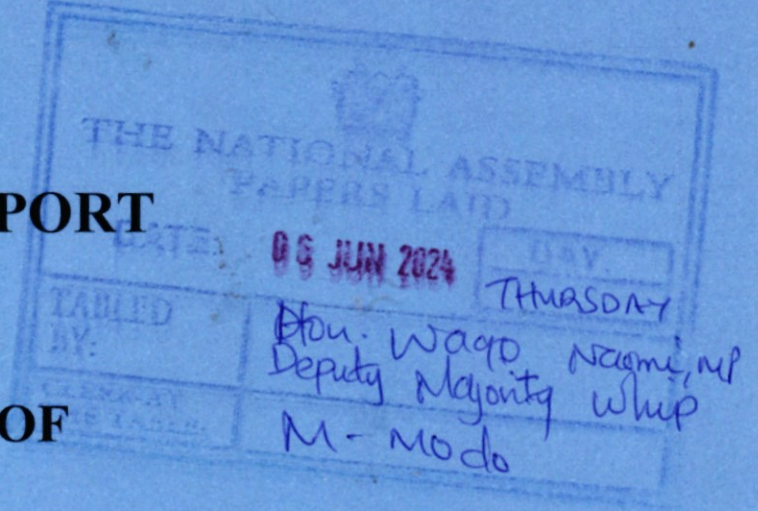 THE NATIONAL ASSEMBLY
PAPERS LAID
PORT
DATE: 06 JUN 2024 DAY.
THURSDAY
TABLED BY: Hon. Waqo Naomi, MP
Deputy Majority Whip
OF
CLERK-AT THE-TABLE: M-Modo